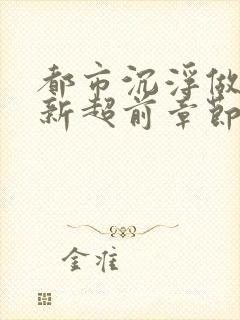 都市沉浮做
新超前章節
金准